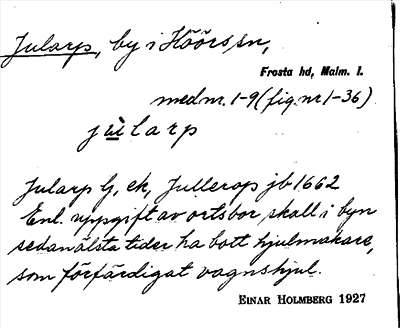 Jularp, by i Höörs sn,
Frosta hd, Malm. l.
med nr. 1-9 (fig. nr 1-36)
jùlarp
Jularp by, ek, Jullerop jb 1662
Enl. uppgift av ortsbor skall i byn
sedan älsta tider ha bott hjulmakare,
som förfärdigat vagnshjul.
EINAR HOLMBERG 1927